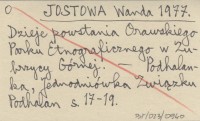 O JOSTOWA Wanda 1977.
Dzieje powstania Orawskiego
Parku Etnograficznego w Zu-
brzycy Górnej. — Podhalan-
ka, Jednodniówka Związku
Podhalan s. 17-19.